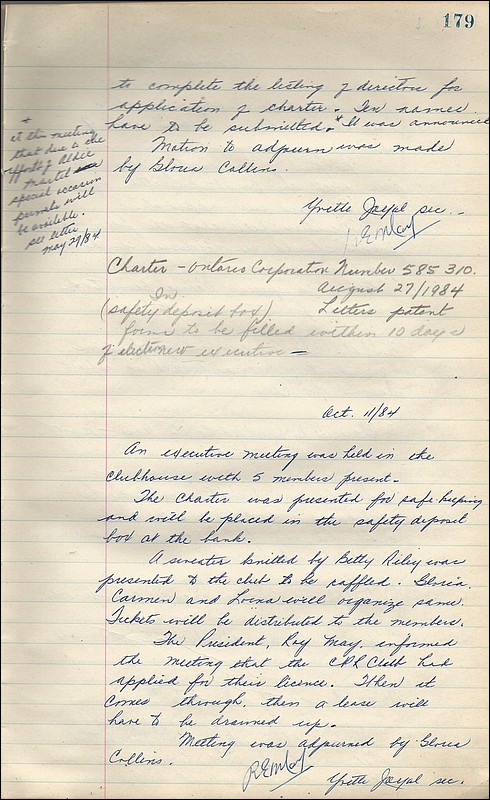 179
to complete the listing of directors for
application of charter. Ten names
have to be submitted.* It was announced
Motion to adjourn was made
by Gloria Collins.
*
at the meeting
that due to the
efforts of Aldee
Martel
special occasion
permits will
be available.
see letter
May 29/84
Yvette Jaypal sec.
R.E. May
Charter - Ontario Corporation Number 585310.
August 27/1984
In
(safety deposit box) Letters patent
forms to be filled within 10 days
of elect. new executive -
Oct. 11/84
An executive meeting was held in the
clubhouse with 5 members present.
The Charter was presented for safe-keeping
and will be placed in the safety deposit
box at the bank.
A sweater knitted by Betty Riley was
presented to the club to be raffled. Gloria,
Carmen and Lorna will organize same.
Tickets will be distributed to the members.
The President, Ray May, informed
the meeting that the CPR Club had
applied for their licence. When it
comes through, then a lease will
have to be drawned up.
Meeting was adjurned by Gloria
Collins.
R.E. May
Yvette Jaypal sec.